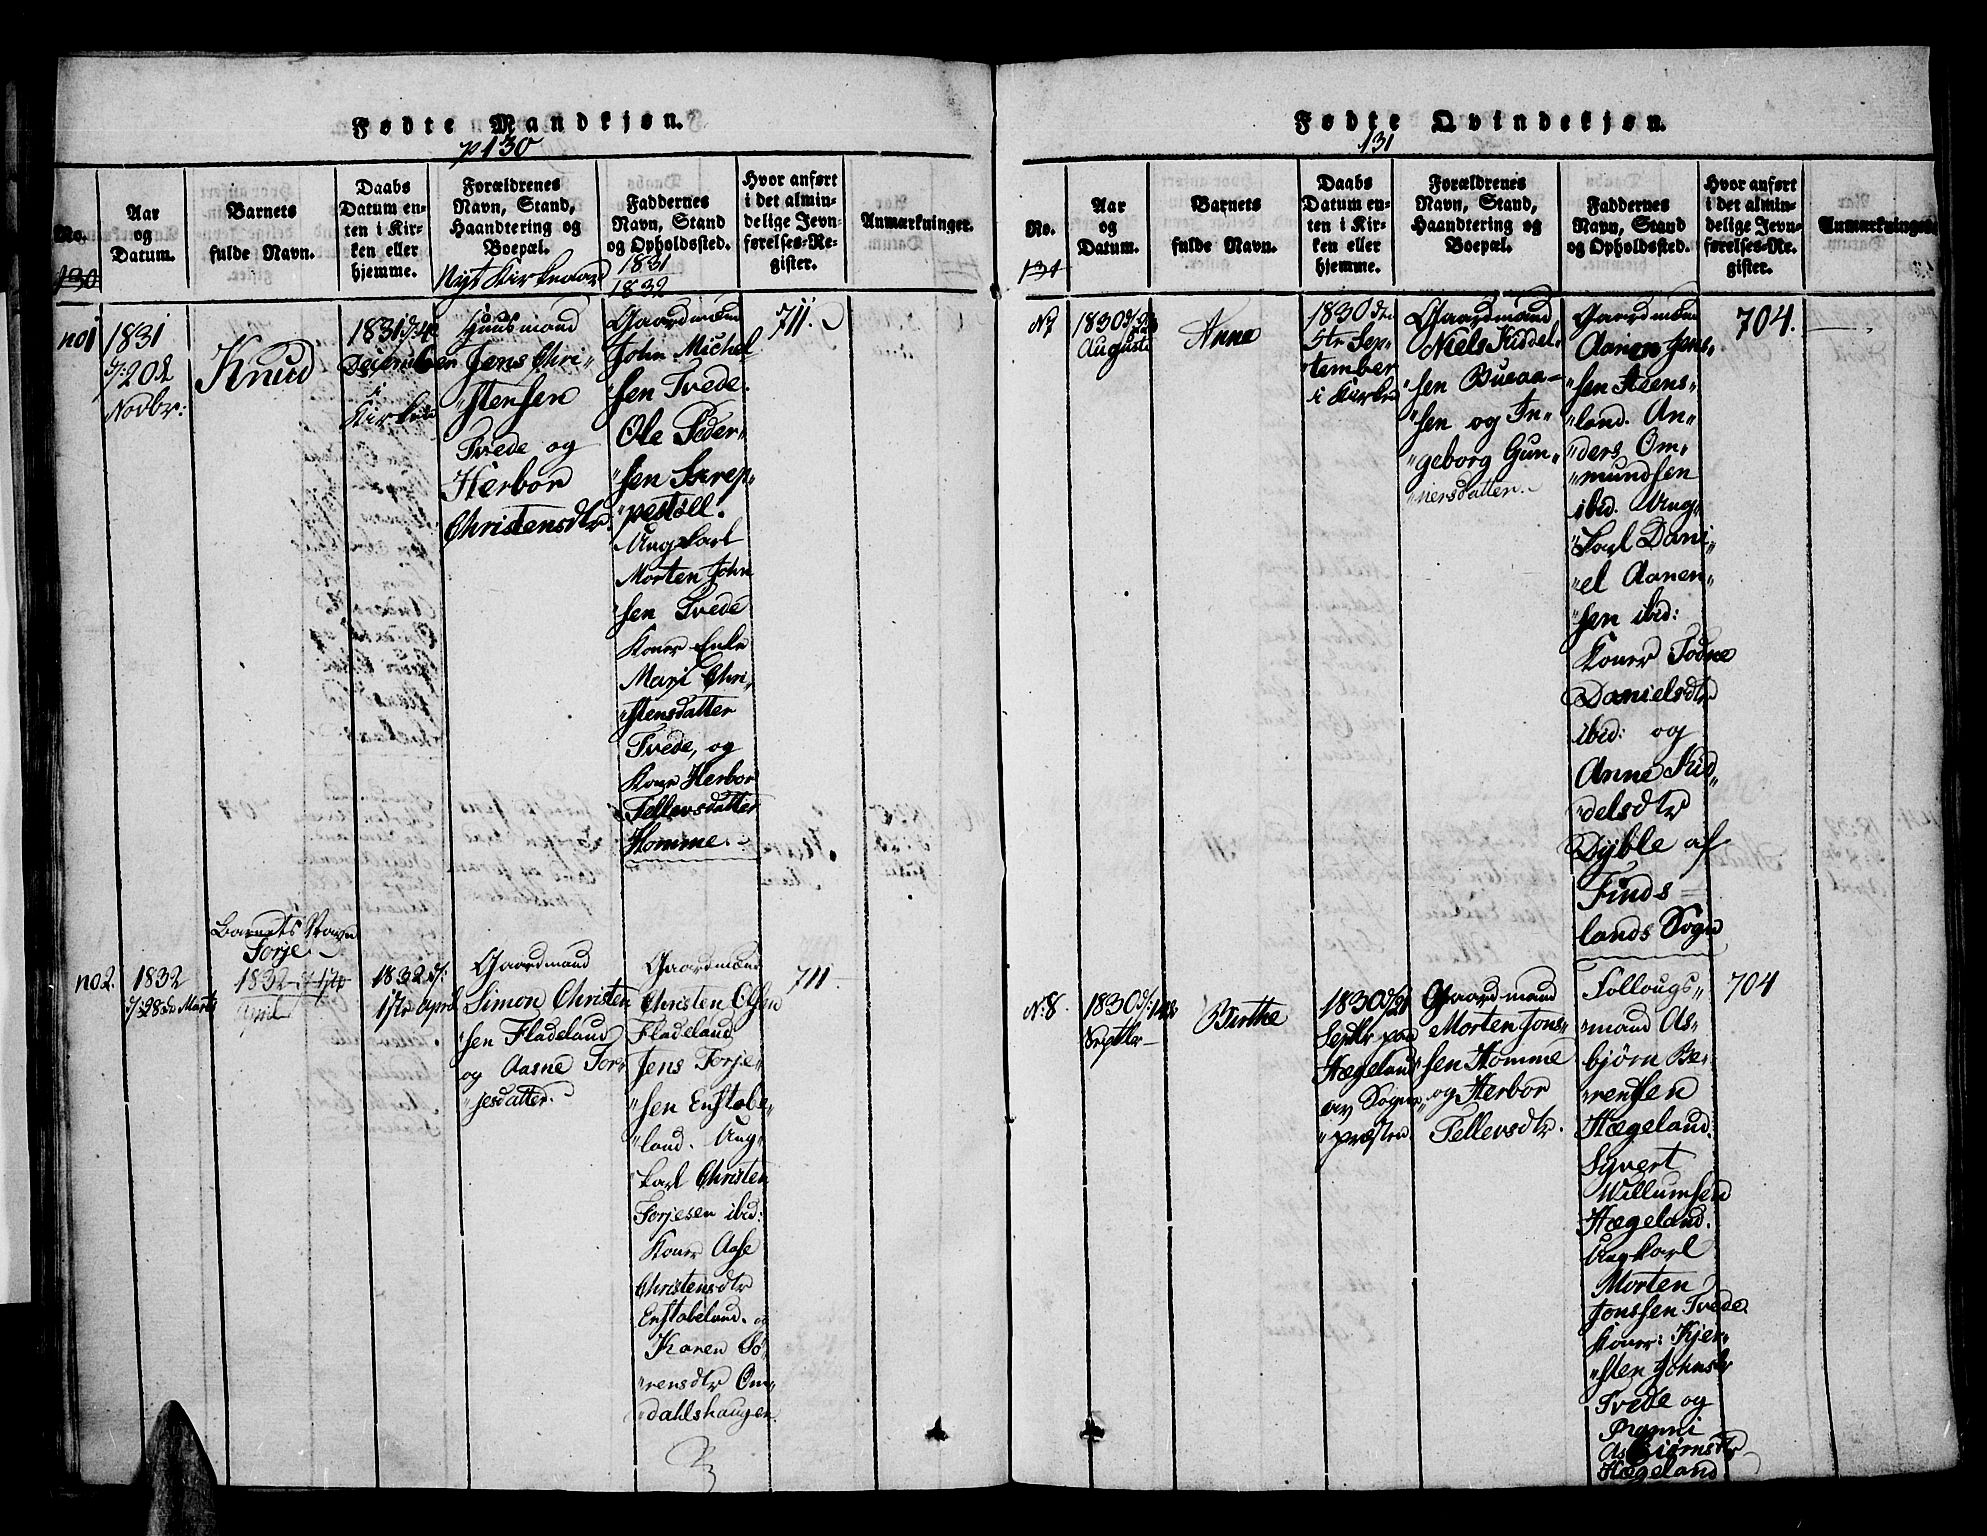 Fødte Mandkjøn.
p 130
No.
130
Aar
og
Datum.
Barnets
fulde Navn.
Daabs
Datum en-
ten i Kir-
ken eller
hjemme.
Forældrenes
Navn, Stand,
Haandtering og
Boepæl.
Nyt Kirkeaar
Faddernes
Navn, Stand
og Opholdssted.
1831
1832
Hvor anført
i det almin-
delige Jevn-
førelses-Re-
gister.
Anmærkninger.
no1
1831
d: 20d
Novbr:
Knud
1831 d: 4
December
i
Kirken
Huusmand
Jens Chri-
"stensen
Tvede og
Herbor
Christensdtr.
Gaardmænd
John Michel
"sen Tvede.
Ole Peder-
"sen Skrep-
"pestøll.
Ungkarl
Morten John
"sen Tvede
Koner Enke
Mari Chri-
"stensdatter
Tvede, og
Kone Herbor
Tellevsdatter
Homme.
711.
Barnets Navn
Torje
no2.
1832
d: 28de Marts
1832 d 1ste
April
1832 d:
1ste April
Gaardmand
Simon Christen
"sen Fladeland
og Aasne Tor-
"jesdatter.
Gaardmænd
Christen Olsen
Fladeland
Jens Torje-
"sen Enstabe-
"land. Ung-
"karl Christen
Torjesen ibid:
Koner Aase
Christensdtr
Enstabeland. og
Karen Sø-
"rensdtr Om-
"dahlshaugen.
711
Fødte Qvindekjøn.
131
No.
131
Aar
og
Datum.
Barnets
fulde Navn.
Daabs
Datum en-
ten i Kir-
ken eller
hjemme.
Forældrenes
Navn, Stand,
Haandtering og
Boepæl.
Faddernes
Navn, Stand
og Opholdssted.
Hvor anført
i det almin-
delige Jevn-
førelses-Re-
gister.
Anmærkninger.
N7
1830
Auguste
Anne
1830 den
5te Sep-
"tember
i Kirken
Gaardmand
Niels Kiddel-
"sen Bueaa-
"sen og In-
"geborg Gun-
"nersdatter.
Gaardmænd
Aanen Jens-
"sen Steens-
"land. An-
"ders Om-
"mundsen
ibid. Ung-
"karl Dani-
"el Aanen-
"sen ibid:
Koner Todne
Danielsdtr
ibid: og
Anne Kid-
"delsdtr
Dyble af
Finds-
lands Sogn
704.
N:8
1830 d: 14de
Septbr
Birthe
1830 d/21
Septbr paa
Hægeland
av Sogne-
"præsten
Gaardmand
Morten Jons-
"sen Homme
"og Herbor
Tellevsdtr.
Føllougs-
"mand As-
bjørn Be-
"rentsen
Hægeland.
Syvert
Willumsen
Hægeland.
Ungkarl
Morten
Jonssen Tvede.
Koner: Kjer-
"sten Johnsdtr
Tvede og
Ragnni
Asbiørnsdtr
Hægeland
704